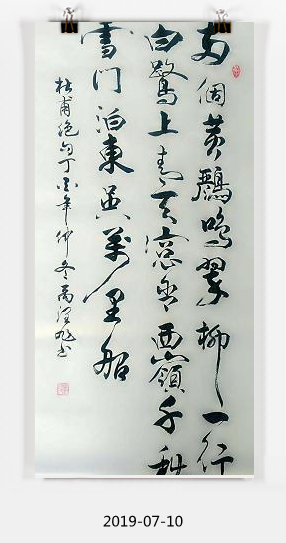 两個黄鸝鳴翠柳一行
白鷺上青天窓含西嶺千秋
雪门泊東吴萬里船
杜甫绝句丁亥年仲冬书
2019-07-10